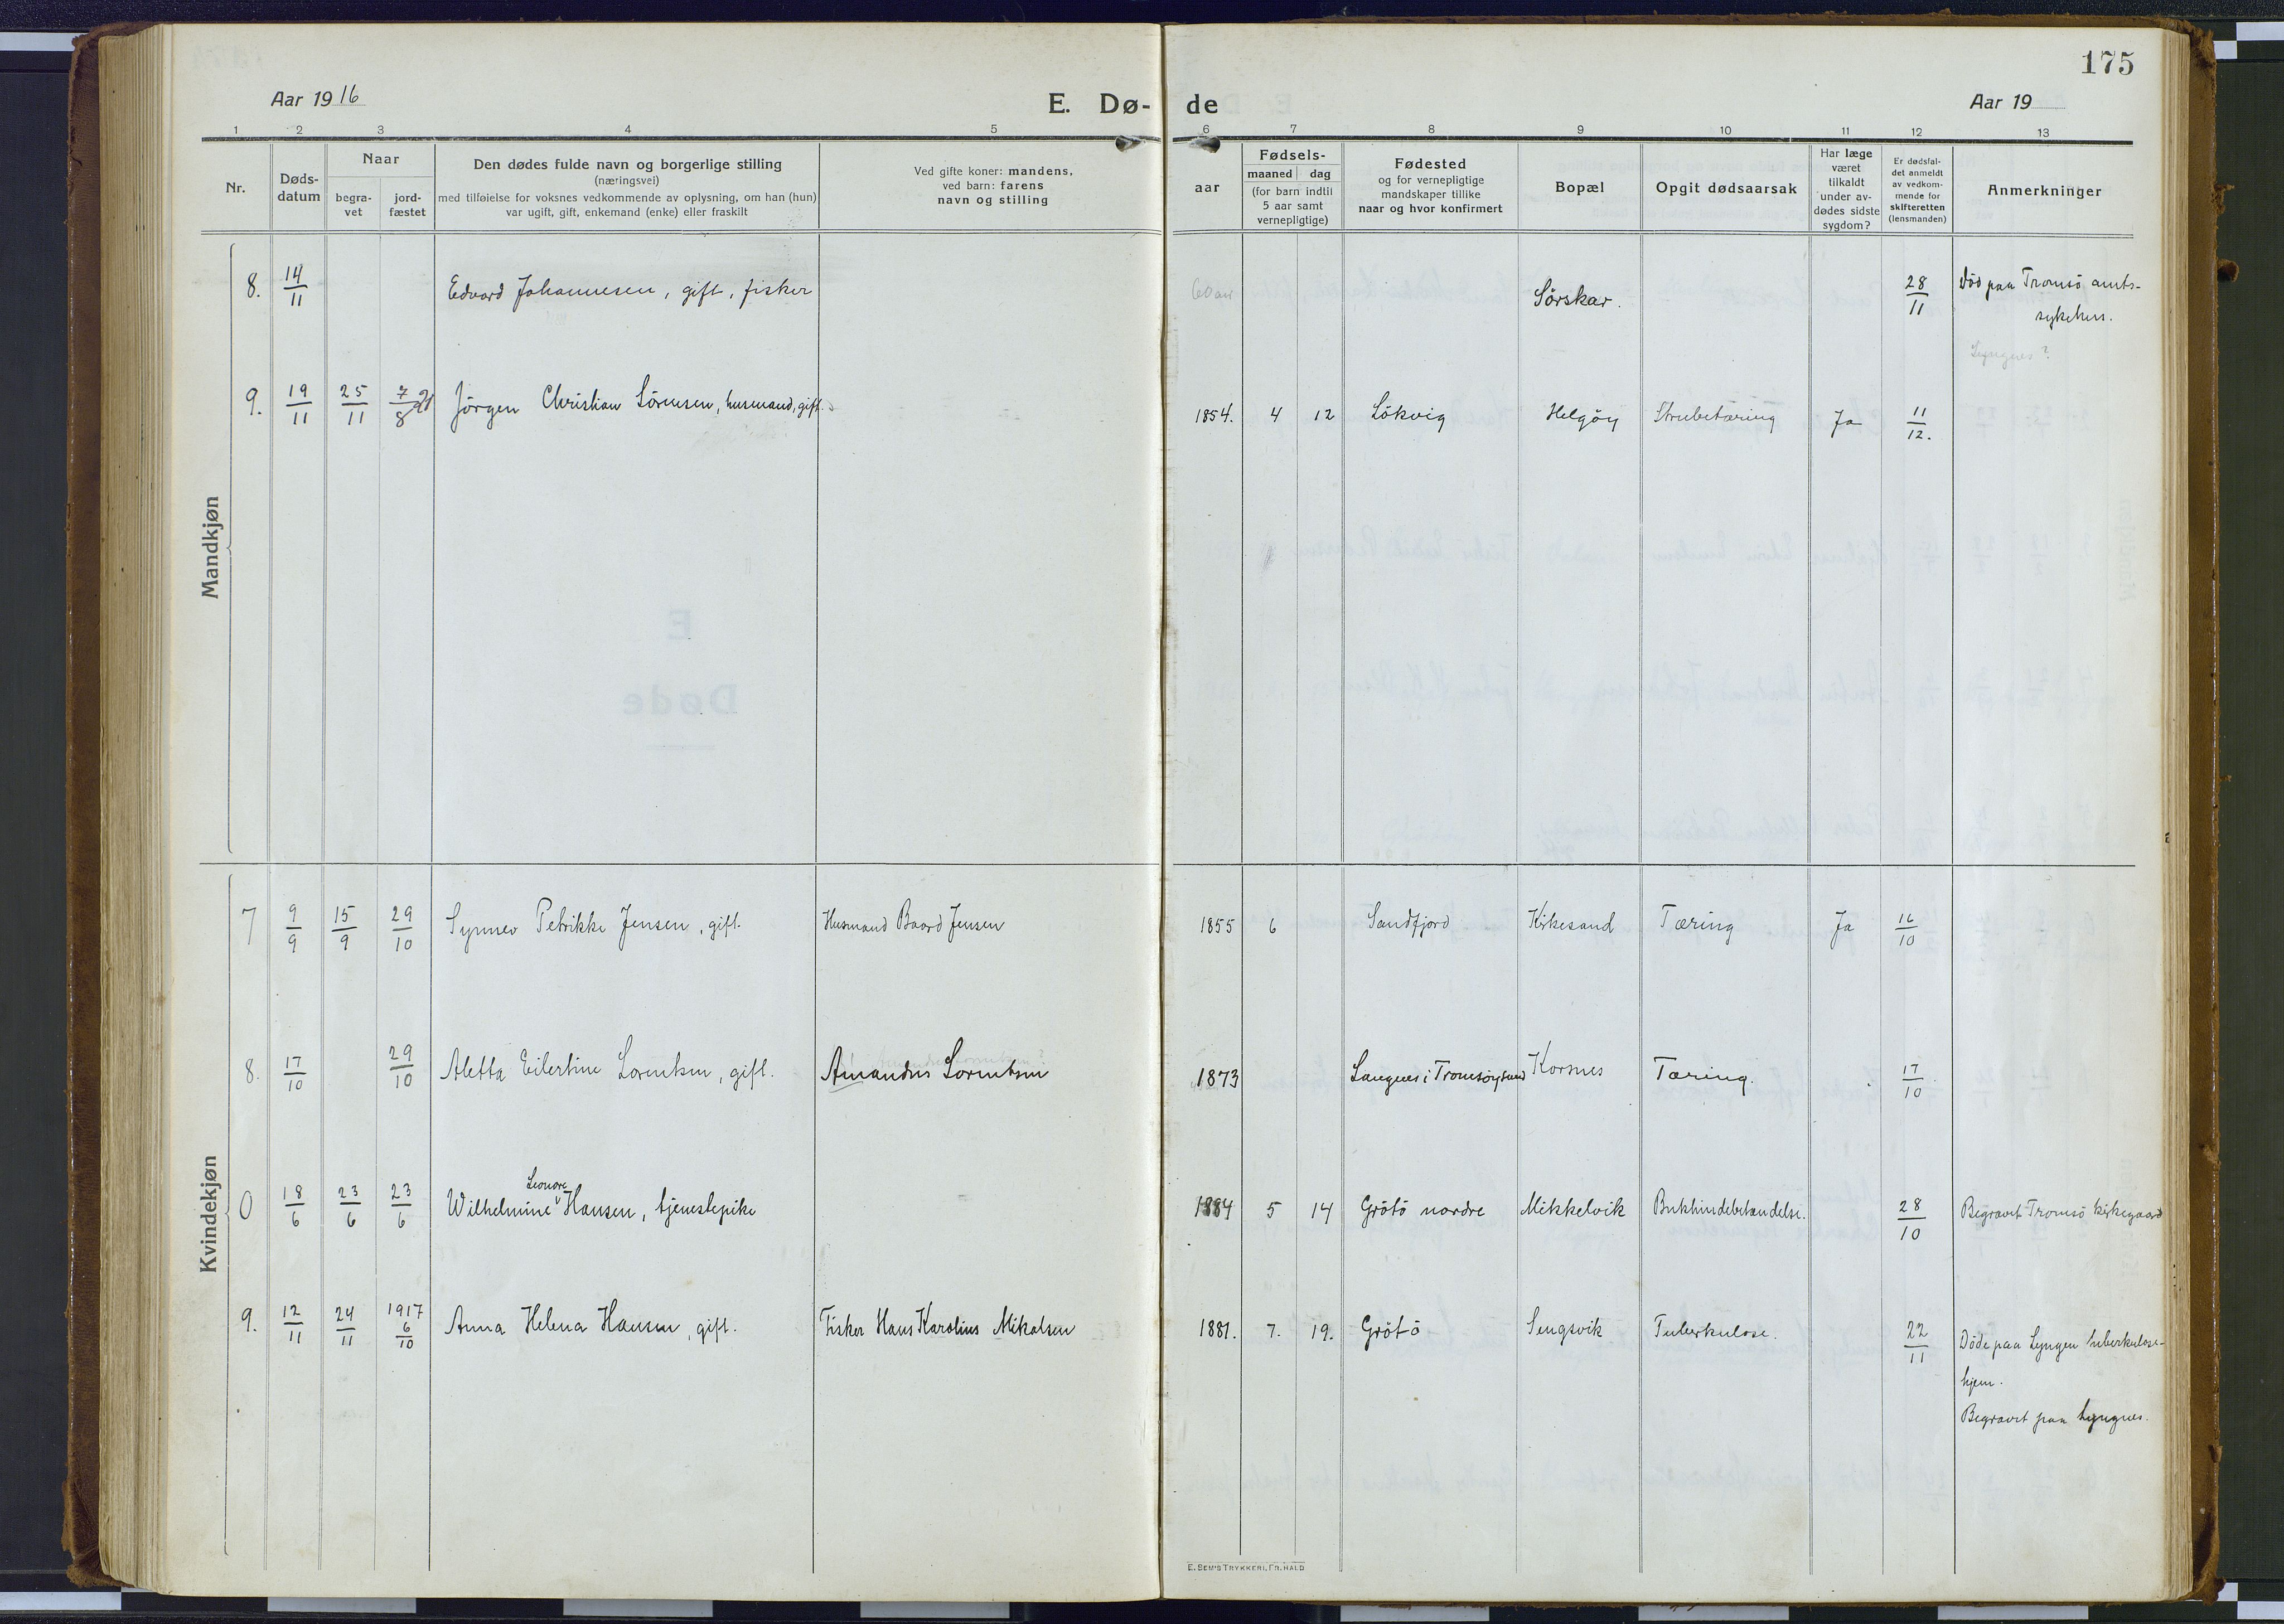 175
Aar 1916
E. Dø-
de
Aar 19
1 2 3 4 5 6 7 8 9 10 11 12 13
Nr.
Døds-
datum
Naar
begra-
vet
jord-
fæstet
Den dødes fulde navn og borgerlige stilling
(næringsvei)
med tilføielse for voksnes vedkommende av oplysning, om han (hun)
var ugift, gift, enkemand (enke) eller fraskilt
Ved gifte koner: mandens,
ved barn: farens
navn og stilling
aar
Fødsels-
maaned dag
(for barn indtil
5 aar samt
vernepligtige)
Fødested
og for vernepligtige
mandskaper tillike
naar og hvor konfirmert
Bopæl
Opgit dødsaarsak
Har læge
været
tilkaldt
under av-
dødes sidste
sygdom?
Er dødsfal-
det anmeldt
av vedkom-
mende for
skifteretten
(lensmanden)
Anmerkninger
Mandkjøn
8. 14/11 Edvard Johannesen, gift, fisker 60 aar Sörskar. 28/11 Död paa Tromsö amts-
sykehus.
Lyngnes?
9. 19/11 25/11 7/8 21 Jörgen Christian Sörensen, husmand, gift. 1854. 4 12 Lökvig Helgöy Strubetæring Ja 11/12.
E
Døde
Kvindekjøn
7 9/9 15/9 29/10 Synnev Petrikke Jensen, gift. Husmand Baard Jensen 1855 6 Sandfjord Kirkesand Tæring Ja 16/10
8. 17/10 29/10 Aletta Eilertine Lorentsen, gift. Amandus Lorentsen 1873 Langnes i Tromsöysund Korsnes Tæring. 17/10.
Leonore
0 18/6 23/6 23/6 Wilhelmine Hansen, tjenestepike 1884 5 14 Grötö nordre Mikkelvik Bukhindebetændelse. 28/10 Begravet Tromsö kirkegaard
9. 12/11 24/11 1917 6/10 Anna Helena Hansen, gift. Fisker Hans Karolius Mikalsen 1881. 7. 19. Grötö Sengsvik Tuberkulose. 22/11 Döde paa Lyngen tuberkulose-
hjem.
Begravet paa Lyngnes.
E. SEM'S TRYKKERI, FR.HALD